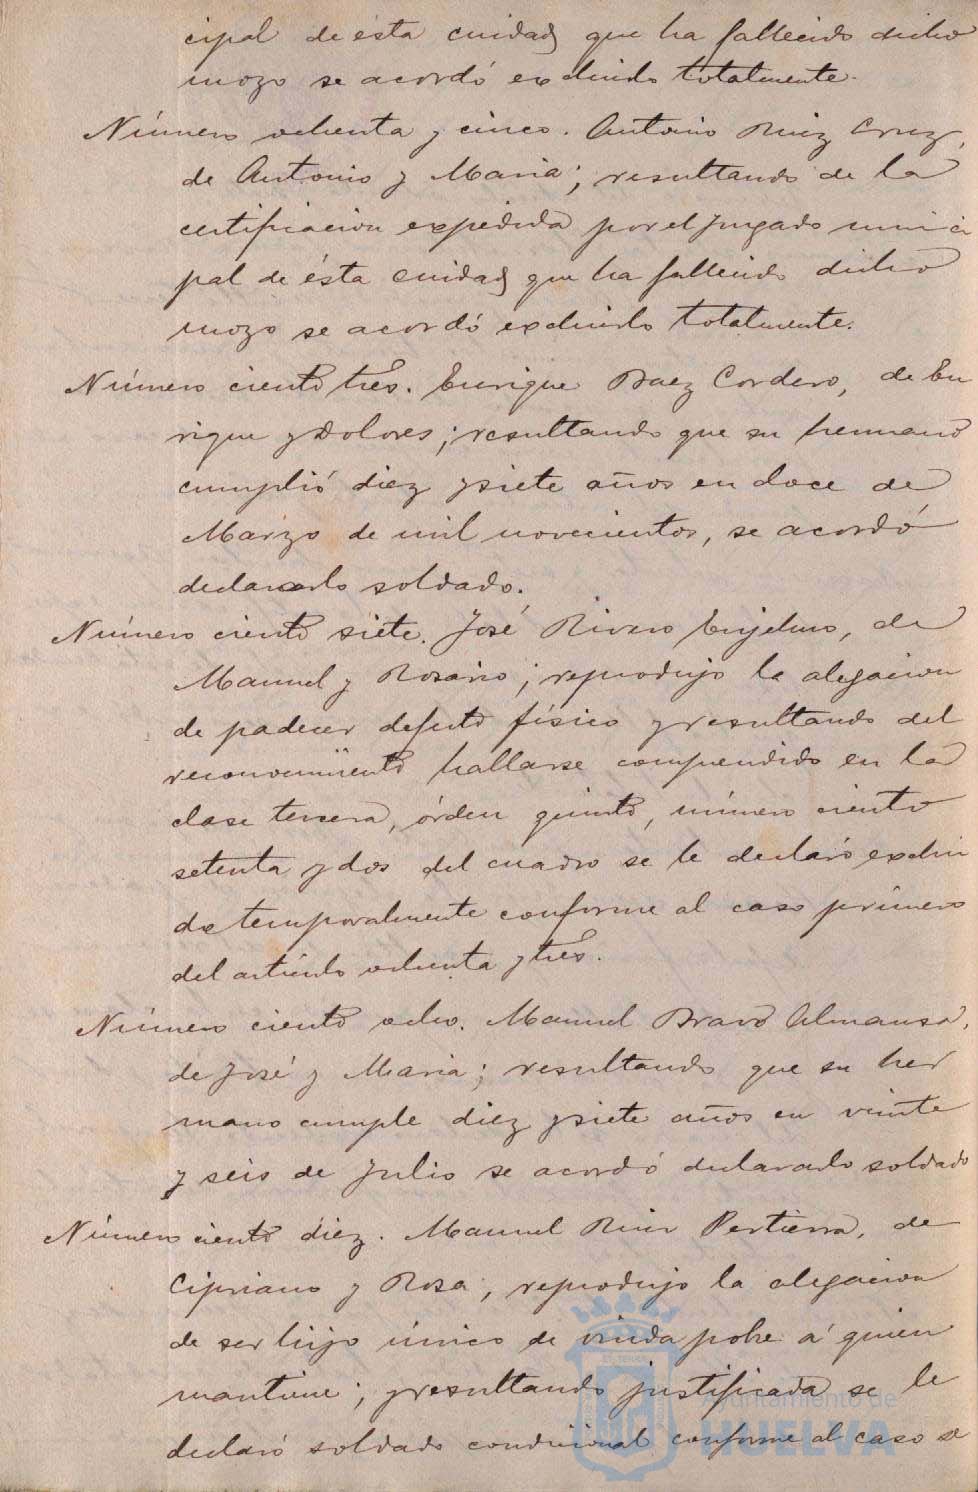 cipal de ésta ciudad que ha fallecido dicho
mozo se acordó excluirlo totalmente.
Número ochenta y cinco. Antonio Ruiz Cruz,
de Antonio y Maria; resultando de la
certificacion expedida por el Juzgado munici
pal de ésta ciudad que ha fallecido dicho
mozo se acordó excluirlo totalmente.
Número ciento tres. Enrique Baez Cordero, de En
rique y Dolores; resultando que su hermano
cumplió diez y siete años en doce de
Marzo de mil novecientos, se acordó
declararlo soldado.
Número ciento siete. José Rivero, de
Manuel y Rosario; reprodujo la alegacion
de padecer defecto físico y resultando del
reconocimiento hallarse comprendido en la
clase tercera, órden quinto, número ciento
setenta y dos del cuadro se le declaró exclui
do temporalmente conforme al caso primero
del artículo ochenta y tres.
Número ciento ocho. Manuel Bravo Almansa,
de José y Maria; resultando que su her
mano cumple diez y siete años en veinte
y seis de Julio se acordó declararlo soldado
Número ciento diez. Manuel Pertierra, de
Cipriano y Rosa; reprodujo la alegacion
de ser hijo único de viuda pobre á quien
mantiene; y resultando justificada se le
declaró soldado condicional conforme al caso se
Ayuntamiento de
HUELVA